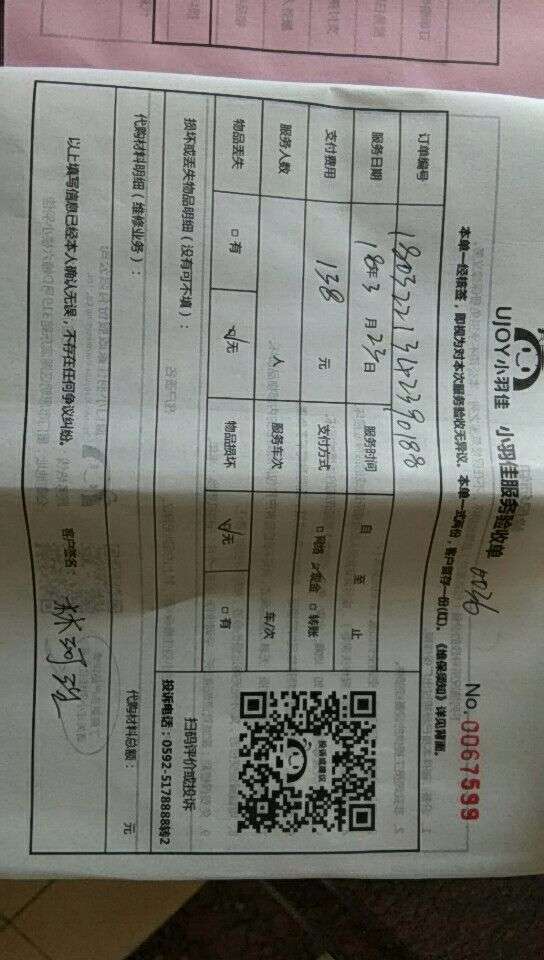 UJOY小羽佳 小羽佳服务验收单
No.0067599
本单一经核签，即视为对本次服务验收无异议。本单一式两份，客户留存一份(红)。《维保须知》详见背面。
订单编号
服务日期 18年3月23日 服务时间 自 至 止
支付费用 138 元 支付方式 □网络 ☑现金 □转账
服务人数 人 服务车次 车/次
物品丢失 □有 ☑无 物品损坏 ☑无 □有
投诉或建议
扫码评价或投诉
投诉电话：0592-5178888转2
损坏或丢失物品明细（没有可不填）：
代购材料明细（维修业务）： 代购材料总额： 元
以上填写信息已经本人确认无误，不存在任何争议纠纷。 客户签名：